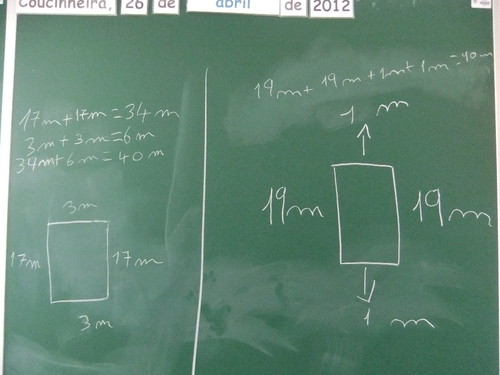 Coucinheira, 26 de abril de 2012
17m+17m=34 m
3m+3m=6m
34m+6m=40 m
3m
17m
17m
3m
19m+19m+1m+1m=40m
1 m
19m
19m
1 m